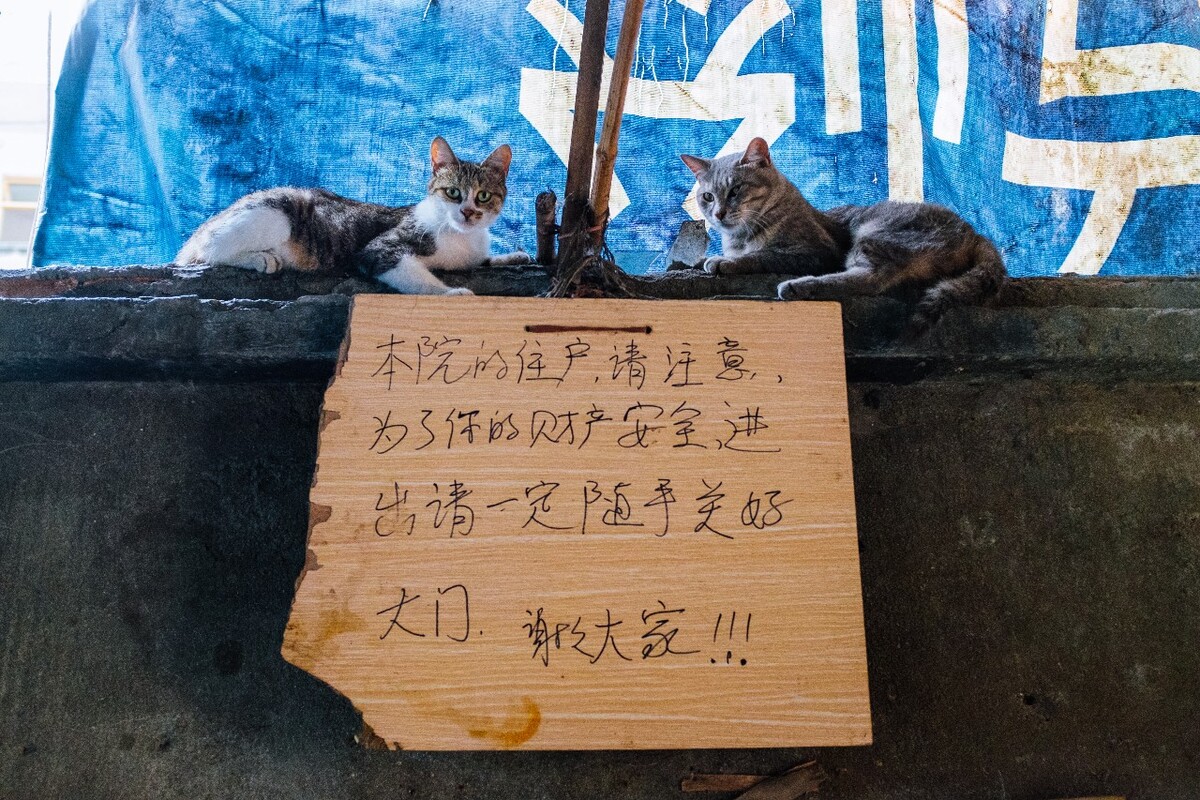 本院的住户,请注意,
为了你的财产安全,进
出请一定随手关好
大门. 谢谢大家!!!